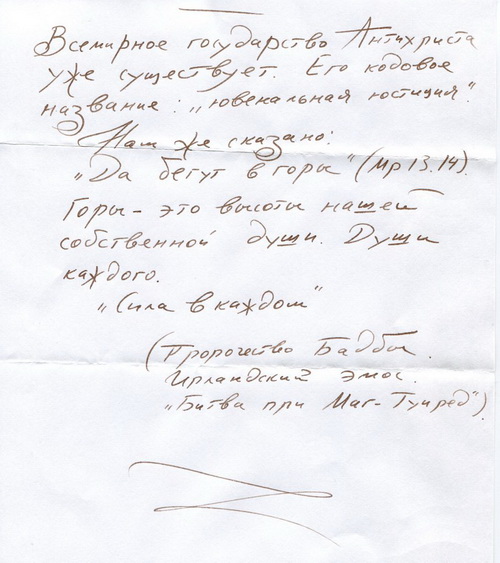 Всемирное государство Антихриста
уже существует. Его кодовое
название: „ювенальная юстиция".
Нам же сказано:
„Да бегут в горы" (Мр 13.14).
Горы - это высоты нашей
собственной души. Души
каждого.
„Сила в каждом"
(Пророчество Бадбы.
Ирландский эпос.
„Битва при Маг-Туиред")